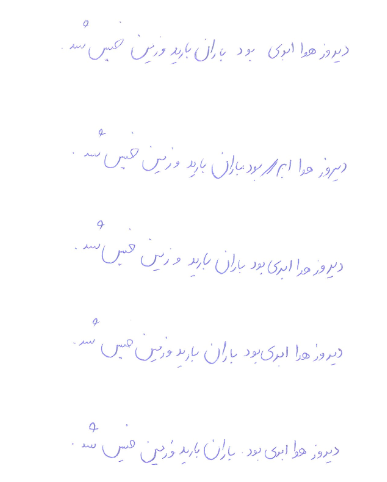 دیروز هوا ابری بود باران بارید و زمین خیس شد.
دیروز هوا ابر بود باران بارید و زمین خیس شد.
دیروز هوا ابری بود باران بارید و زمین خیس شد.
دیروز هوا ابری بود باران بارید و زمین خیس شد.
دیروز هوا ابری بود. باران بارید و زمین خیس شد.